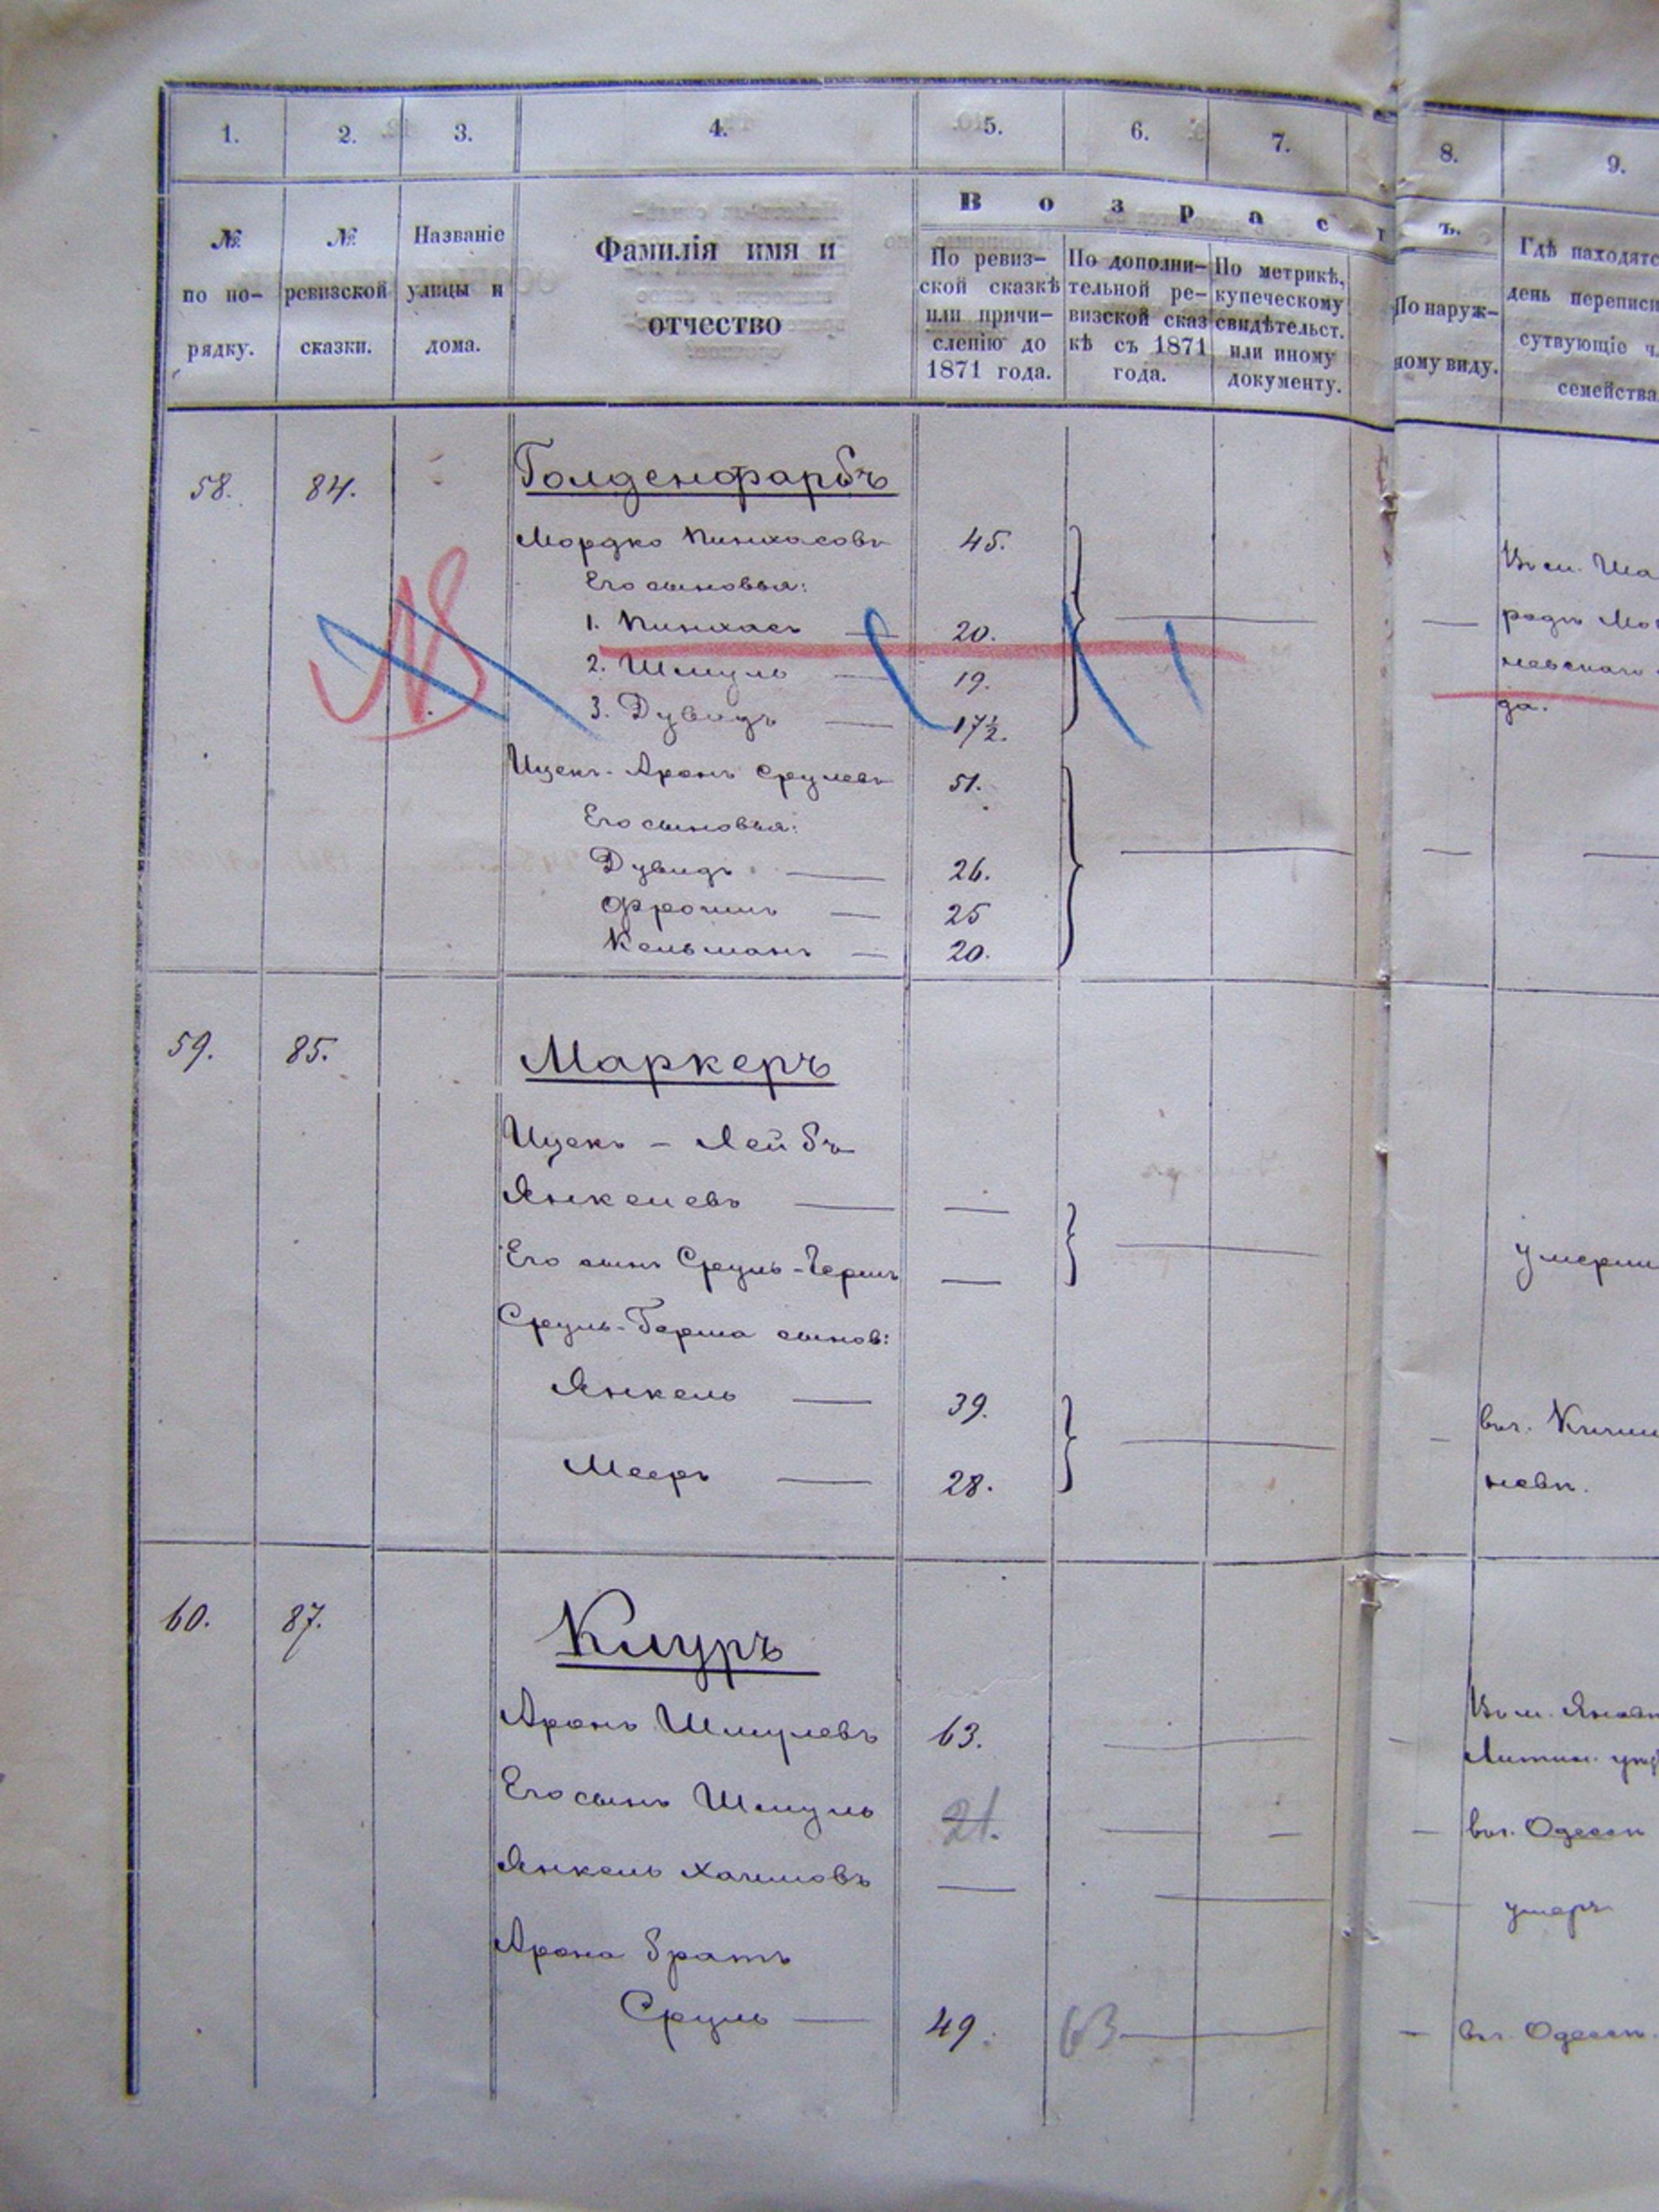 1. 2. 3. 4. 5. 6. 7. 8. 9.
В о з р а с т ъ.
№ по по- рядку.
№ ревизской сказки.
Названіе улицы и дома.
Фамилія имя и
отчество
По ревиз-
ской сказкѣ
или причи-
сленію до
1871 года.
По дополни-
тельной ре-
визской сказ
кѣ съ 1871
года.
По метрикѣ,
купеческому
свидѣтельст.
или иному
документу.
По наруж-
ному виду.
Гдѣ находятс
день переписи
сутвующіе ч
семейства
58. 84. Голденфарбъ
Мордко Пинхасовъ 45.
Его сыновья:
1. Пинхасъ — 20.
2. Шмуль — 19.
3. Дувидъ — 17½.
Ицекъ-Аронъ Срулевъ 51.
Его сыновья:
Дувидъ — 26.
Фроимъ — 25
Кельманъ — 20.
59. 85. Маркеръ
Ицекъ – Лейбъ
Янкелевъ — —
Его сынъ Сруль-Гершъ — — умерли
Сруль-Герша сынов:
Янкель — 39. — — въ г. Киши
Мееръ — 28. невѣ.
60. 87. Клуръ
Аронъ Шмулевъ 63. — —
Его сынъ Шмуль 21. — — — въ г. Одессѣ
Янкель Хаимовъ — — — умеръ
Арона братъ
Сруль — 49. 63 — — въ г. Одессѣ.